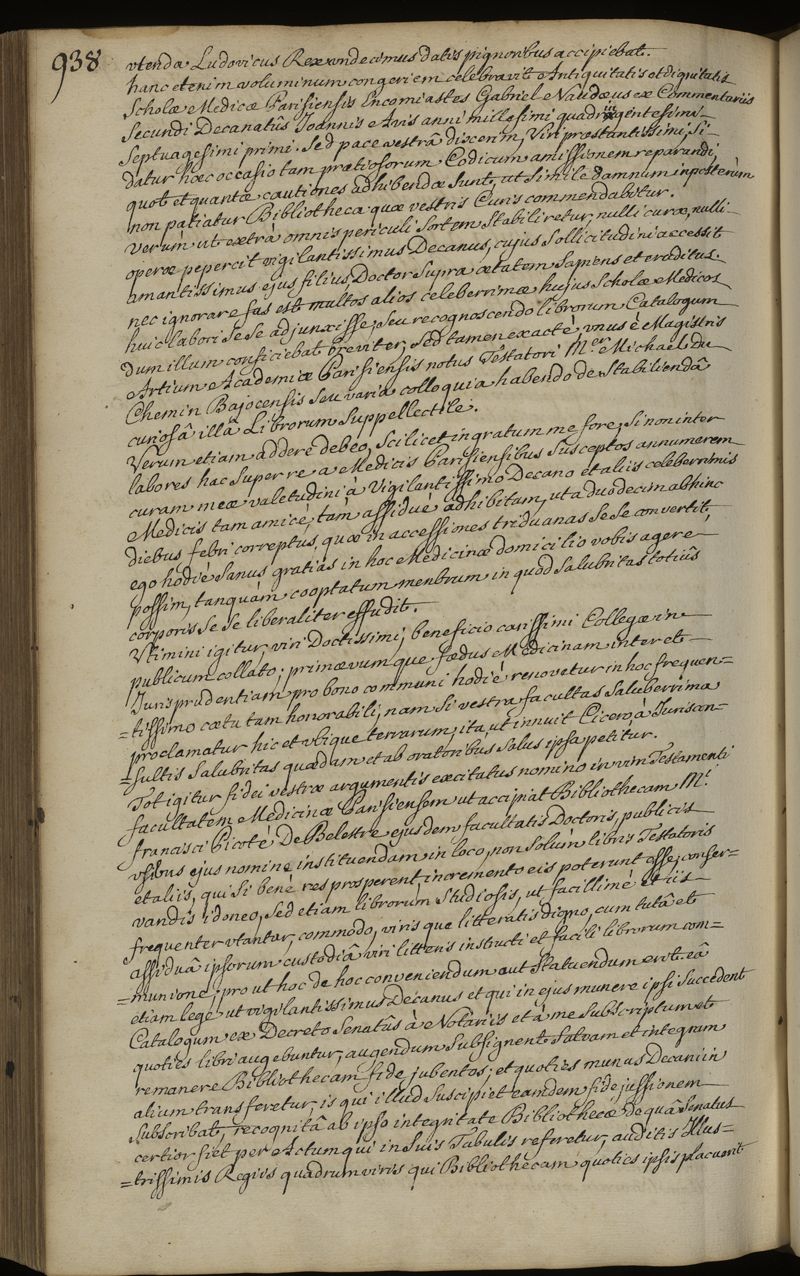 938
vtenda Ludovicus Rex undecimus datis pignoribus accipiebat.
hanc etenim voluminum congeriem celebravit Antiquitatis et dignitatis
Scholæ Medicæ Parisiensis Encomiastes Gabriel Naudæus ex Commentariis
Secundi Decanatûs Joannis Avis anni millesimi quadringentesimi
Septuagesimi primi. Sed pace vestrâ dixerim, Viri præstantissimi, Si
datur hæc occasio tam prætiosorum Codicum amissionem reparandi,
quot et quantæ cautiones adhibendæ Sunt, ut Simile damnum inposterùm
non patiatur Bibliotheca quæ vestris Curis commendabitur.
Verùm ut extrà omnis periculi Sortem Stabiliretur, nulli curæ, nulli
operæ pepercit vigilantissimus Decanus, cujus Sollicitudini accessit
amantissimus ejus filius, Doctor Supra ætatem Sapiens et eruditus.
nec ignorare fas est multos alios celeberrimæ hujus Scholæ Medicos
huic labori Se Se adjunxisse, Seu recognoscendo librorum Catalogum
dum illum conficiebat breviter, Sed tamen exactè vnus è Magistris
Artium Academiæ Parisiensis notus Testatori M.er Michael du
Chemin Bajocensis Seu varia colloquia habendo de Stabiliendâ
curiosâ illâ Librorum Suppellectile.
Verum etiam addere debeo, Scilicet ingratum me fore, Si non inter
labores hac Super re a Medicis Parisiensibus Susceptos annumerem
curam meæ valetudini à Vigilantissimo Decano et aliis celeberrimis
Medicis tam amicé, tam assiduè adhibitam, ut a duodecim abhinc
diebus febri correptus, quæ in accessiones triduanas Se Se convertit,
ego hodiè Sanus gratias in hoc Medicinæ domicilio vobis agere
possim, tanquàm cooptatum membrum in quod Salubritas totiùs
corporis Se Se liberaliter effudit.
Vtimini igitur, viri Doctissimi, beneficio carissimi Collegæ in
publicum collato; primævumque fœdus Medicinam inter et
Jurisprudentiam pro bono communi hodiè renovetur in hoc frequen=
=tissimo cœtu tam honorabili, nam Si vestra facultas Saluberrima
proclamatur hic et vbique terrarum, ita, ut innuit Cicero, à Juriscon=
=sultis Salubritas quædam et ab oratoribus Salus ipsa petitur.
Tot igitur fidei vestræ argumentis excitatus nomino in vim Testamenti
facultatem Medicinæ Parisiensem ut accipiat Bibliothecam M.i
francisci Picoté De Belestre ejusdem facultatis Doctoris, publicis
vsibus ejus nomine instituendam in loco, non Solùm libris Testatoris
et aliis, qui Si benè res prosperent incremento eis poterunt esse, conser=
vandis idoneo, Sed etiam librorum Studiosis, ut facillimè et iis
frequenter vtantur, commodo, viris que litteratis digno, cum tutâ et
assiduâ ipsorum custodiâ viri litteris instructi et facili librorum com=
=munione, pro ut hoc de hoc conveniendum aut Statuendum erit. eâ
etiam lege ut vigilantissimus Decanus et qui in ejus munere ipsi Succedent
Catalogum ex Decreto Senatûs à Notariis et à me Subscriptum et
quoties libri augebuntur, augendum Subsignent Salvam et integram
remanere Bibliothecam fide jubentes; et quoties munus Decani in
alium transferetur, is qui illud Suscipiet eamdem fide jussionem
Subscribat, recognitâ ab ipso integritate Bibliothecæ de quâ Senatus
certior fiet per Actum qui in Suis Tabulis referetur, auditis Illus=
=trissimis Regiis quadrumviris qui Bibliothecam quoties ipsis placuerit